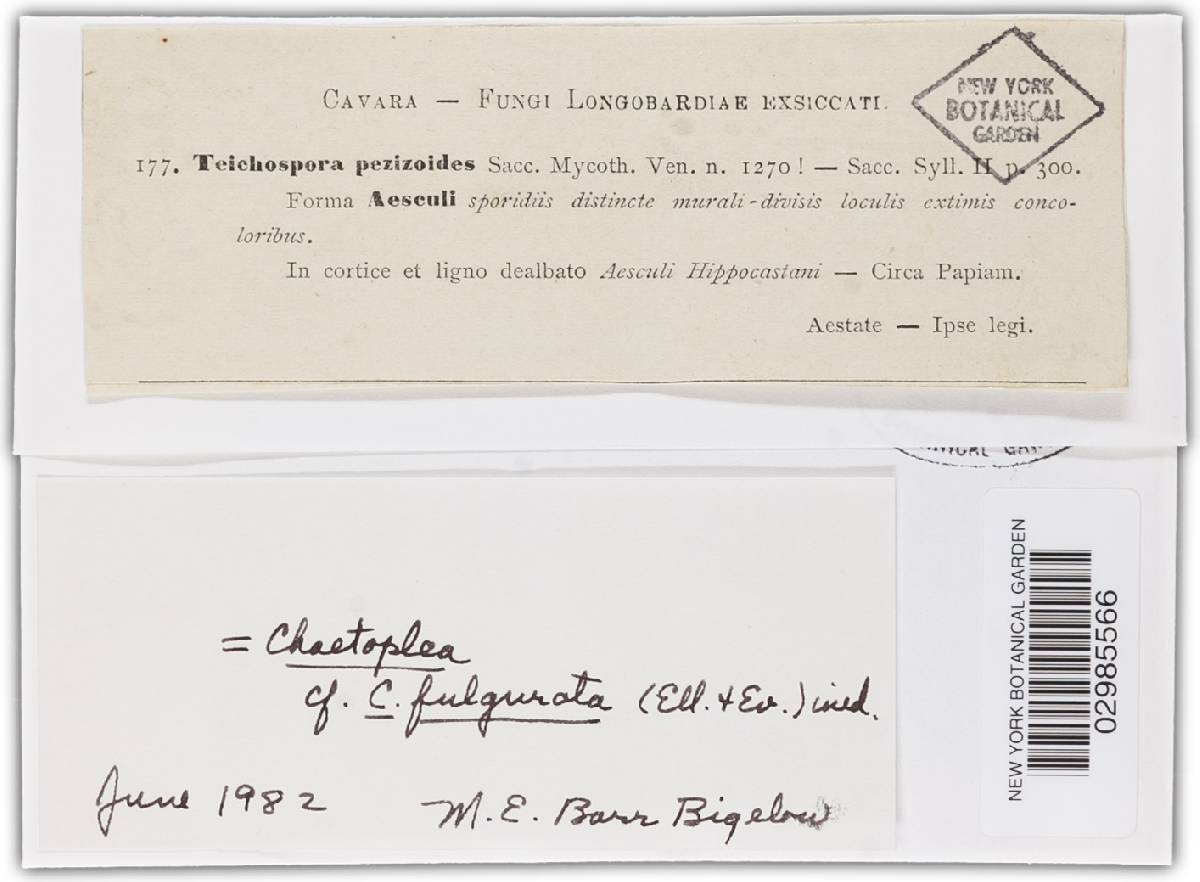 CAVARA — FUNGI LONGOBARDIAE EXSICCATI.
NEW YORK
BOTANICAL
GARDEN
177. Teichospora pezizoides Sacc. Mycoth. Ven. n. 1270! — Sacc. Syll. II p. 300.
Forma Aesculi sporidiis distincte murali-divisis loculis extimis conco-
loribus.
In cortice et ligno dealbato Aesculi Hippocastani — Circa Papiam.
Aestate — Ipse legi.
= Chaetoplea
cf. C. fulgurata (Ell. & Ev.) ined.
June 1982 M. E. Barr Bigelow
NEW YORK BOTANICAL GARDEN
02985566